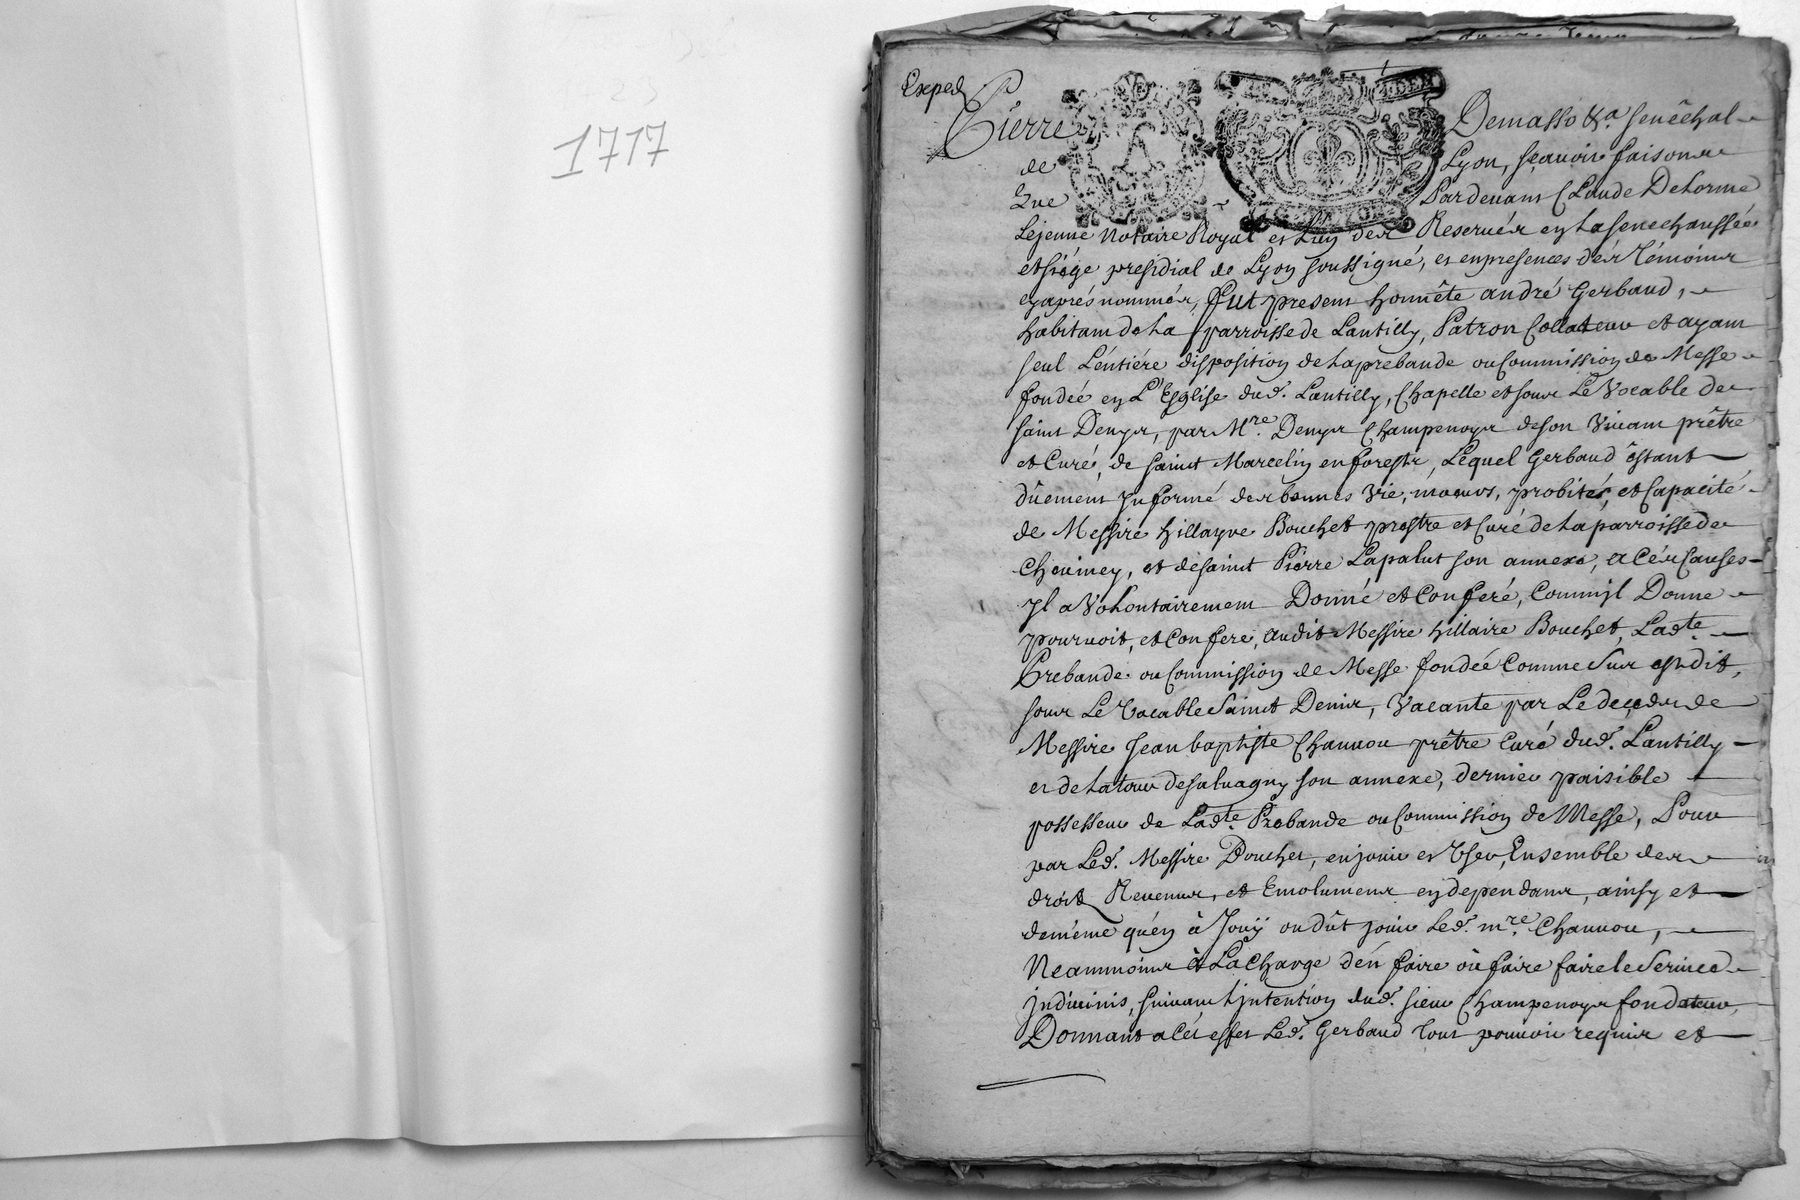 1717
Exped
Pierre Demasso &a. senêchal
de Lyon, sçavoir faisons
Que Pardevant Claude Delorme
Lejeune Notaire Royal et Luy des Reservés en La senechaussée
et siége presidial de Lyon soussigné, et en presences dés Témoins
cy aprés nommés, fut present honnête andré Gerbaud,
habitant de La parroisse de Lantilly, Patron Collateur et ayant
seul L'éntiére disposition de La prebande ou Commission de Messe
fondée en L'Eglise dud. Lantilly, Chapelle et sous Le Vocable de
saint Denys, par Mre. Denys Champenoys de son Vivant prêtre
et Curé, de saint Marcelin en forests, Lequel Gerbaud êstant
dûement Jnformé des bonnes Vie, moeurs, probités, et Capacité
de Messire hillayre Bouchet prestre et Curé de La parroisse de
Chouiney, et de saint Pierre Lapalut son annexe, a Cés Causes
Jl a Volontairement Donné et Conferé, Comm'jl Donne
pourvoit, et Confere, audit Messire hillaire Bouchet, Ladte.
Prebande ou Commission de Messe fondée Comme dessus est dit,
sous Le Vocable Saint Denis, Vacante par Le decéds de
Messire Jean baptiste Chauvou prêtre Curé dud. Lantilly
et de La tour de salvagny son annexe, dernier paisible
possesseur de Ladte. Prebande ou Commission de Messe, Pour
par Led. Messire Bouchet, en jouir et Vser, Ensemble des
droits Revenus, et Emolumens en dependans, ainsy et
de même qu'en à Jouÿ ou dût jouir Led. mre. Chauvou,
Neammoins à La Charge d'én faire où faire faire le Service
jndivinis, suivant L'jntention dud. sieur Champenoys fondateur,
Donnant a Cét effet Led. Gerbaud tout pouvoir requis et